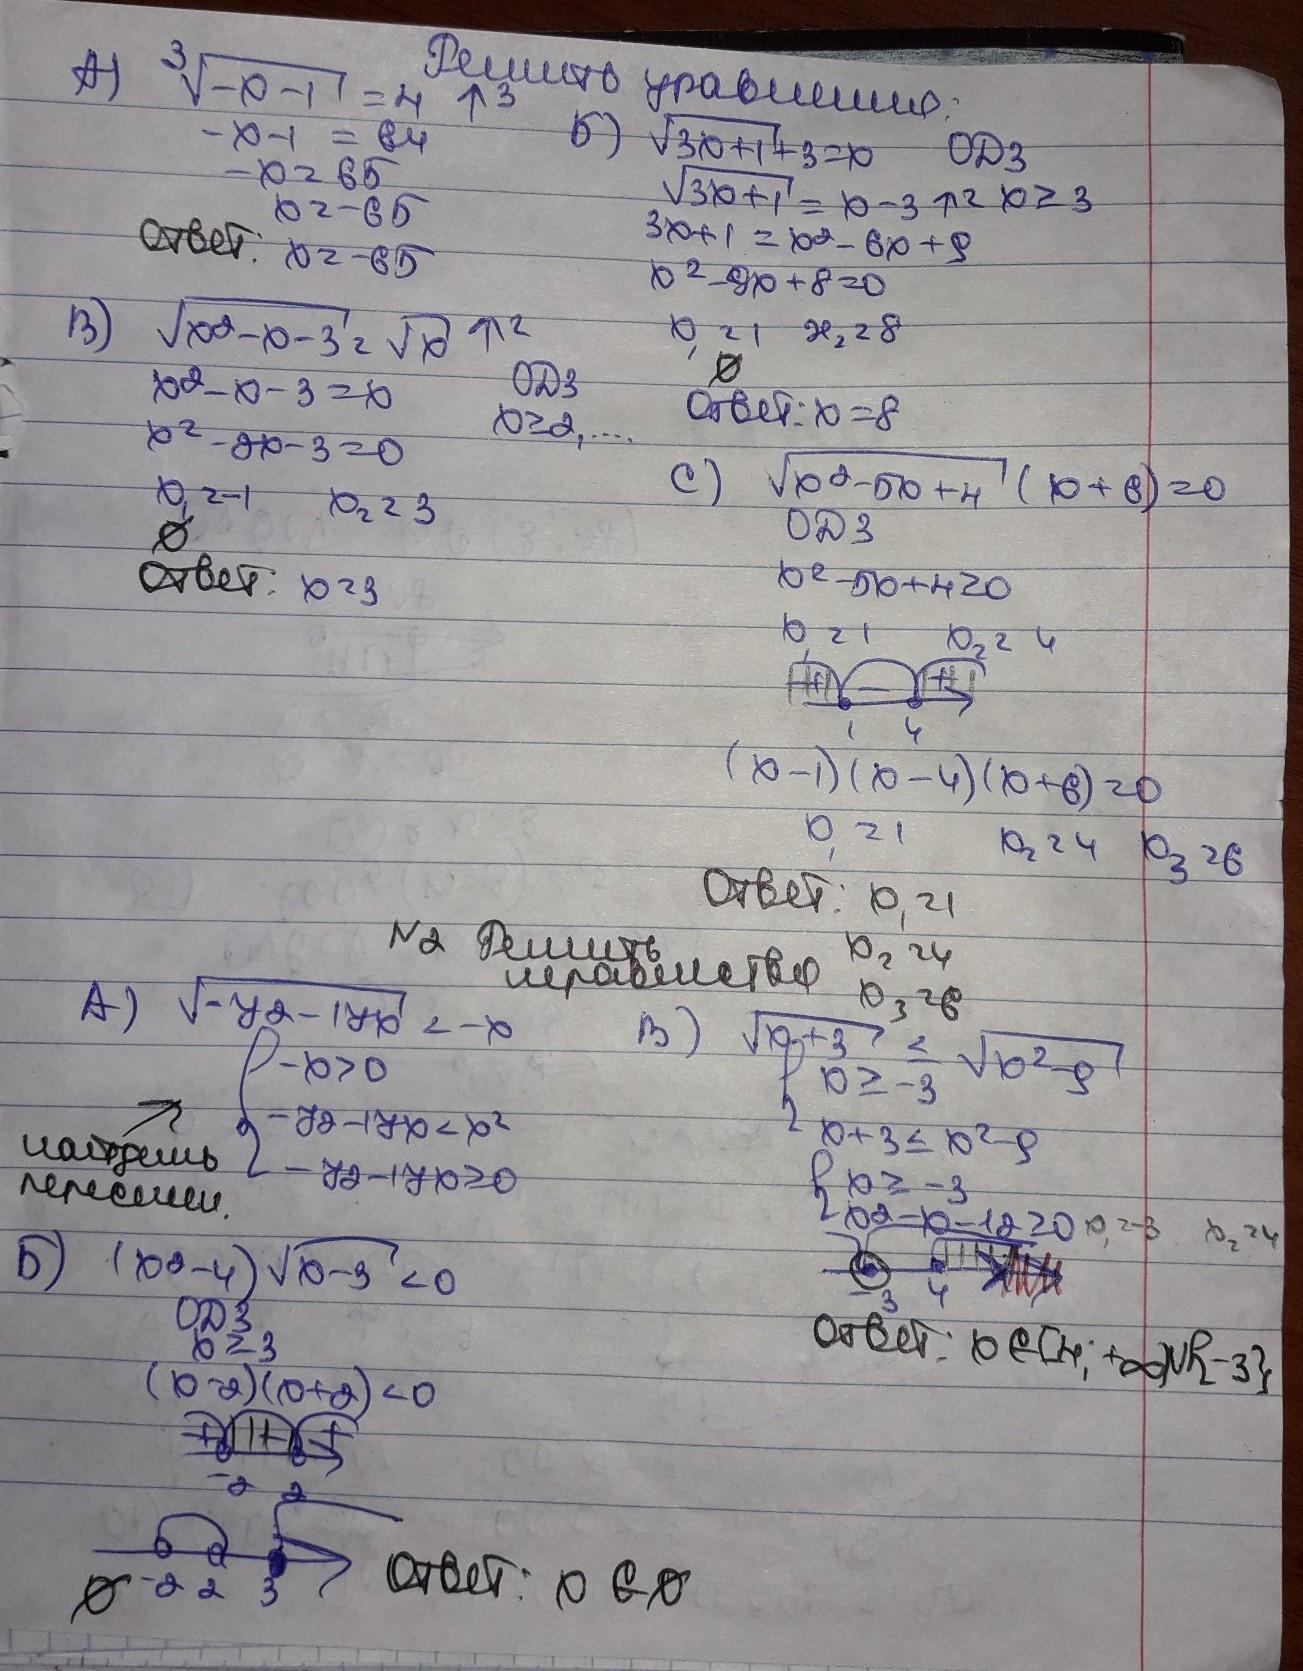 Решить уравнение:
А) ³√(-x-1) = 4 ↑3
-x-1 = 64
-x = 65
x = -65
Ответ: x = -65
Б) √(3x+1) + 3 = x ОДЗ
√(3x+1) = x-3 ↑2 x ≥ 3
3x+1 = x²-6x+9
x²-9x+8=0
x₁ = 1 x₂ = 8
∅
Ответ: x = 8
В) √(x²-x-3) = √x ↑2
x²-x-3 = x ОДЗ
x ≥ 2,....
x²-2x-3=0
x₁ = -1 x₂ = 3
∅
Ответ: x = 3
С) √(x²-5x+4) (x+6) = 0
ОДЗ
x²-5x+4 ≥ 0
x₁ = 1 x₂ = 4
+ - +
1 4
(x-1)(x-4)(x+6) = 0
x₁ = 1 x₂ = 4 x₃ = 6
Ответ: x₁ = 1
x₂ = 4
x₃ = 6
N2 Решить
неравенство
А) √(-72-17x) < -x
{ -x > 0
-72-17x < x²
-72-17x ≥ 0
найдешь
пересечен.
Б) (x²-4)√(x-3) < 0
ОДЗ
x ≥ 3
(x-2)(x+2) < 0
+ +
-2 2
-2 2 3
∅
Ответ: x ∈ ∅
В) √(x+3) ≤ √(x²-9)
{ x ≥ -3
x+3 ≤ x²-9
{ x ≥ -3
x²-x-12 ≥ 0 x₁ = -3 x₂ = 4
-3 4
Ответ: x ∈ [4; +∞)∨{-3}